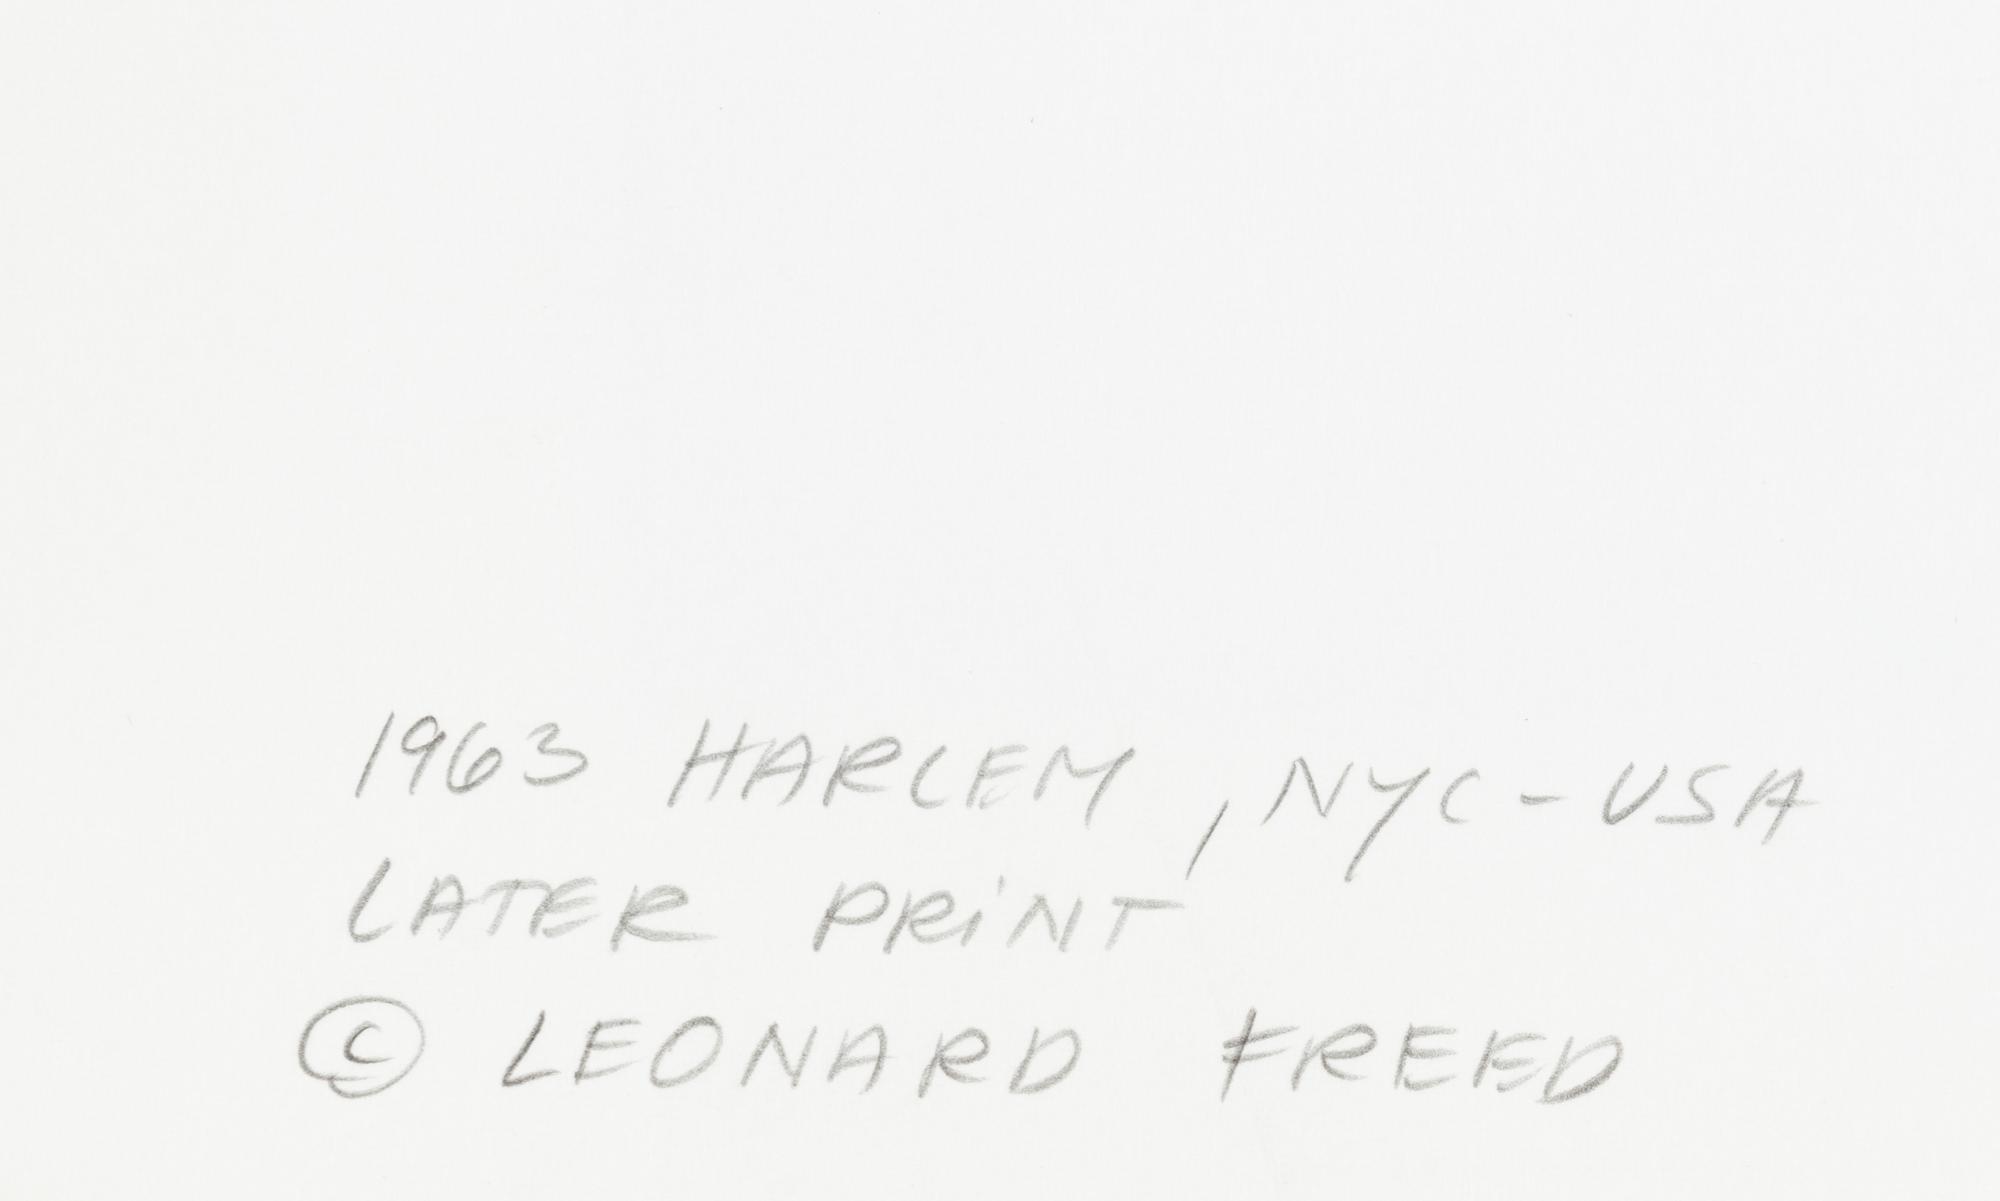 1963 HARLEM, NYC - USA
LATER PRiNT
© LEONARD FREED